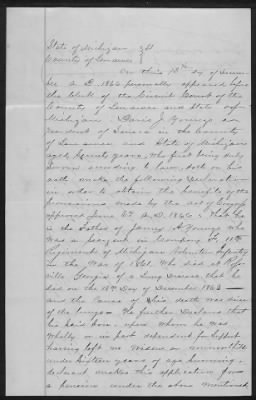 State of Michigan } SS
County of Lenawee
On this 13th day of
A.D. 1866 personally appeared before
the Clerk of the Circuit Court of the
County of Lenawee and State of
Michigan David J. Young a
resident of in the County
of Lenawee and State of Michigan
aged years, who first being duly
Sworn according to law, doth on his
oath make the following Declaration
in order to obtain the benefits of the
provisions made by the act of Congress
approved June 6th A.D. 1866: That he
is the Father of James A. Young who
was a Sergeant in Company 11th
Regiment of Michigan Volunteer Infantry
in the War of 1861 who died at
Georgia of a Lung Disease, that he
died on the 18th Day of December 1863 —
and the Cause of his death was disease
of the lungs — He further Declares that
his said Son, upon whom he was
Wholly or in part dependent for Support
having left no widow or minor child
under Sixteen years of age Surviving,
makes this application for
a pension under the above mentioned